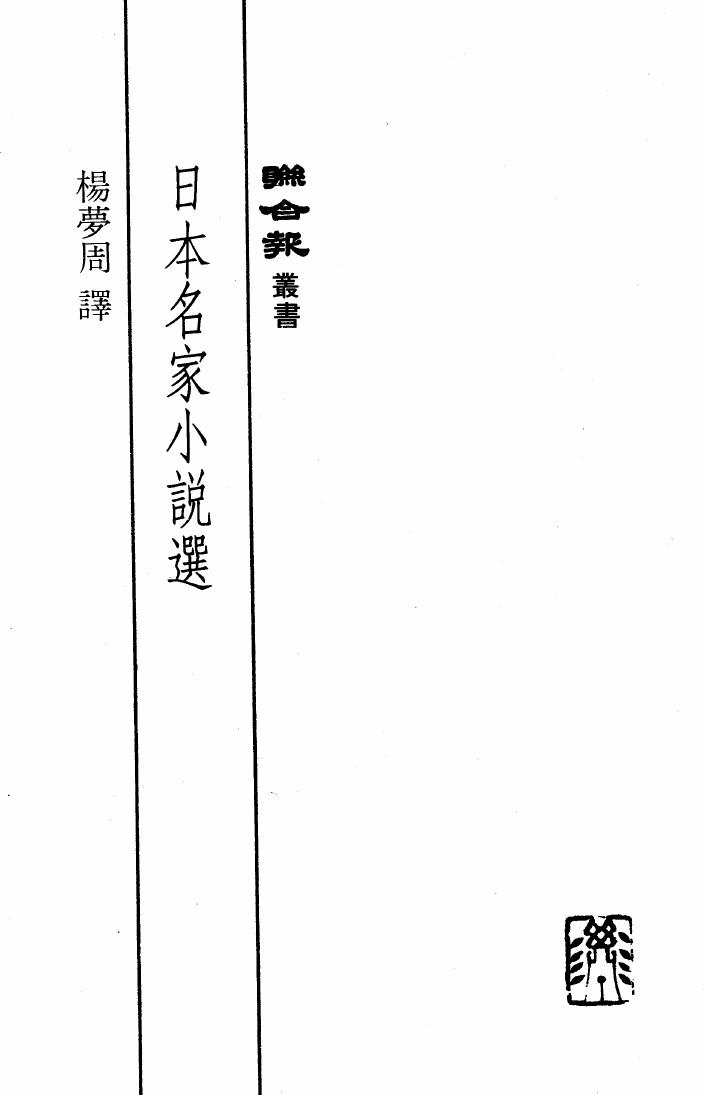 聯合報叢書
日本名家小説選
楊夢周 譯